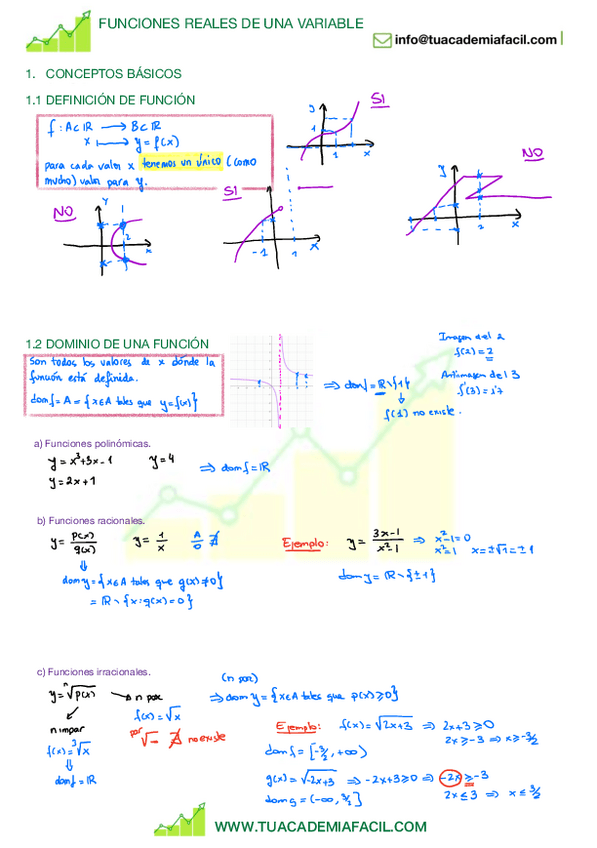 FUNCIONES REALES DE UNA VARIABLE
info@tuacademiafacil.com
1. CONCEPTOS BÁSICOS
1.1 DEFINICIÓN DE FUNCIÓN
f: A⊂ℝ → B⊂ℝ
x → y = f(x)
para cada valor x tenemos un único (como
mucho) valor para y.
SI
y
1
1
x
NO
y
2
x
NO
y
2
x
SI
-1
1
x
1.2 DOMINIO DE UNA FUNCIÓN
Son todos los valores de x dónde la
función está definida.
domf = A = {x∈A tales que y=f(x)}
⇒ domf = ℝ\{1}
f(1) no existe.
Imagen del 2
f(2) = 2
Antimagen del 3
a) Funciones polinómicas.
y = x³+3x-1 y = 4
y = 2x+1
⇒ domf = ℝ
b) Funciones racionales.
y = p(x)/q(x) y = 1/x A/0 ∄
⇓
domy = {x∈A tales que q(x)≠0}
= ℝ\{x: q(x)=0}
Ejemplo: y = 3x-1/x²-1 ⇒ x²-1=0
x²=1 x=±√1=±1
domy = ℝ\{±1}
c) Funciones irracionales.
y = ⁿ√p(x) → n par
(n par)
⇒ domy = {x∈A tales que p(x)≥0}
n impar
f(x) = ³√x
⇓
domf = ℝ
f(x) = √x
par √- ∄ no existe
Ejemplo: f(x) = √2x+3 ⇒ 2x+3≥0
2x≥-3 ⇒ x≥-3/2
domf = [-3/2, +∞)
g(x) = √-2x+3 ⇒ -2x+3≥0 ⇒ -2x≥-3
domg = (-∞, 3/2]
2x≤3 ⇒ x≤3/2
WWW.TUACADEMIAFACIL.COM